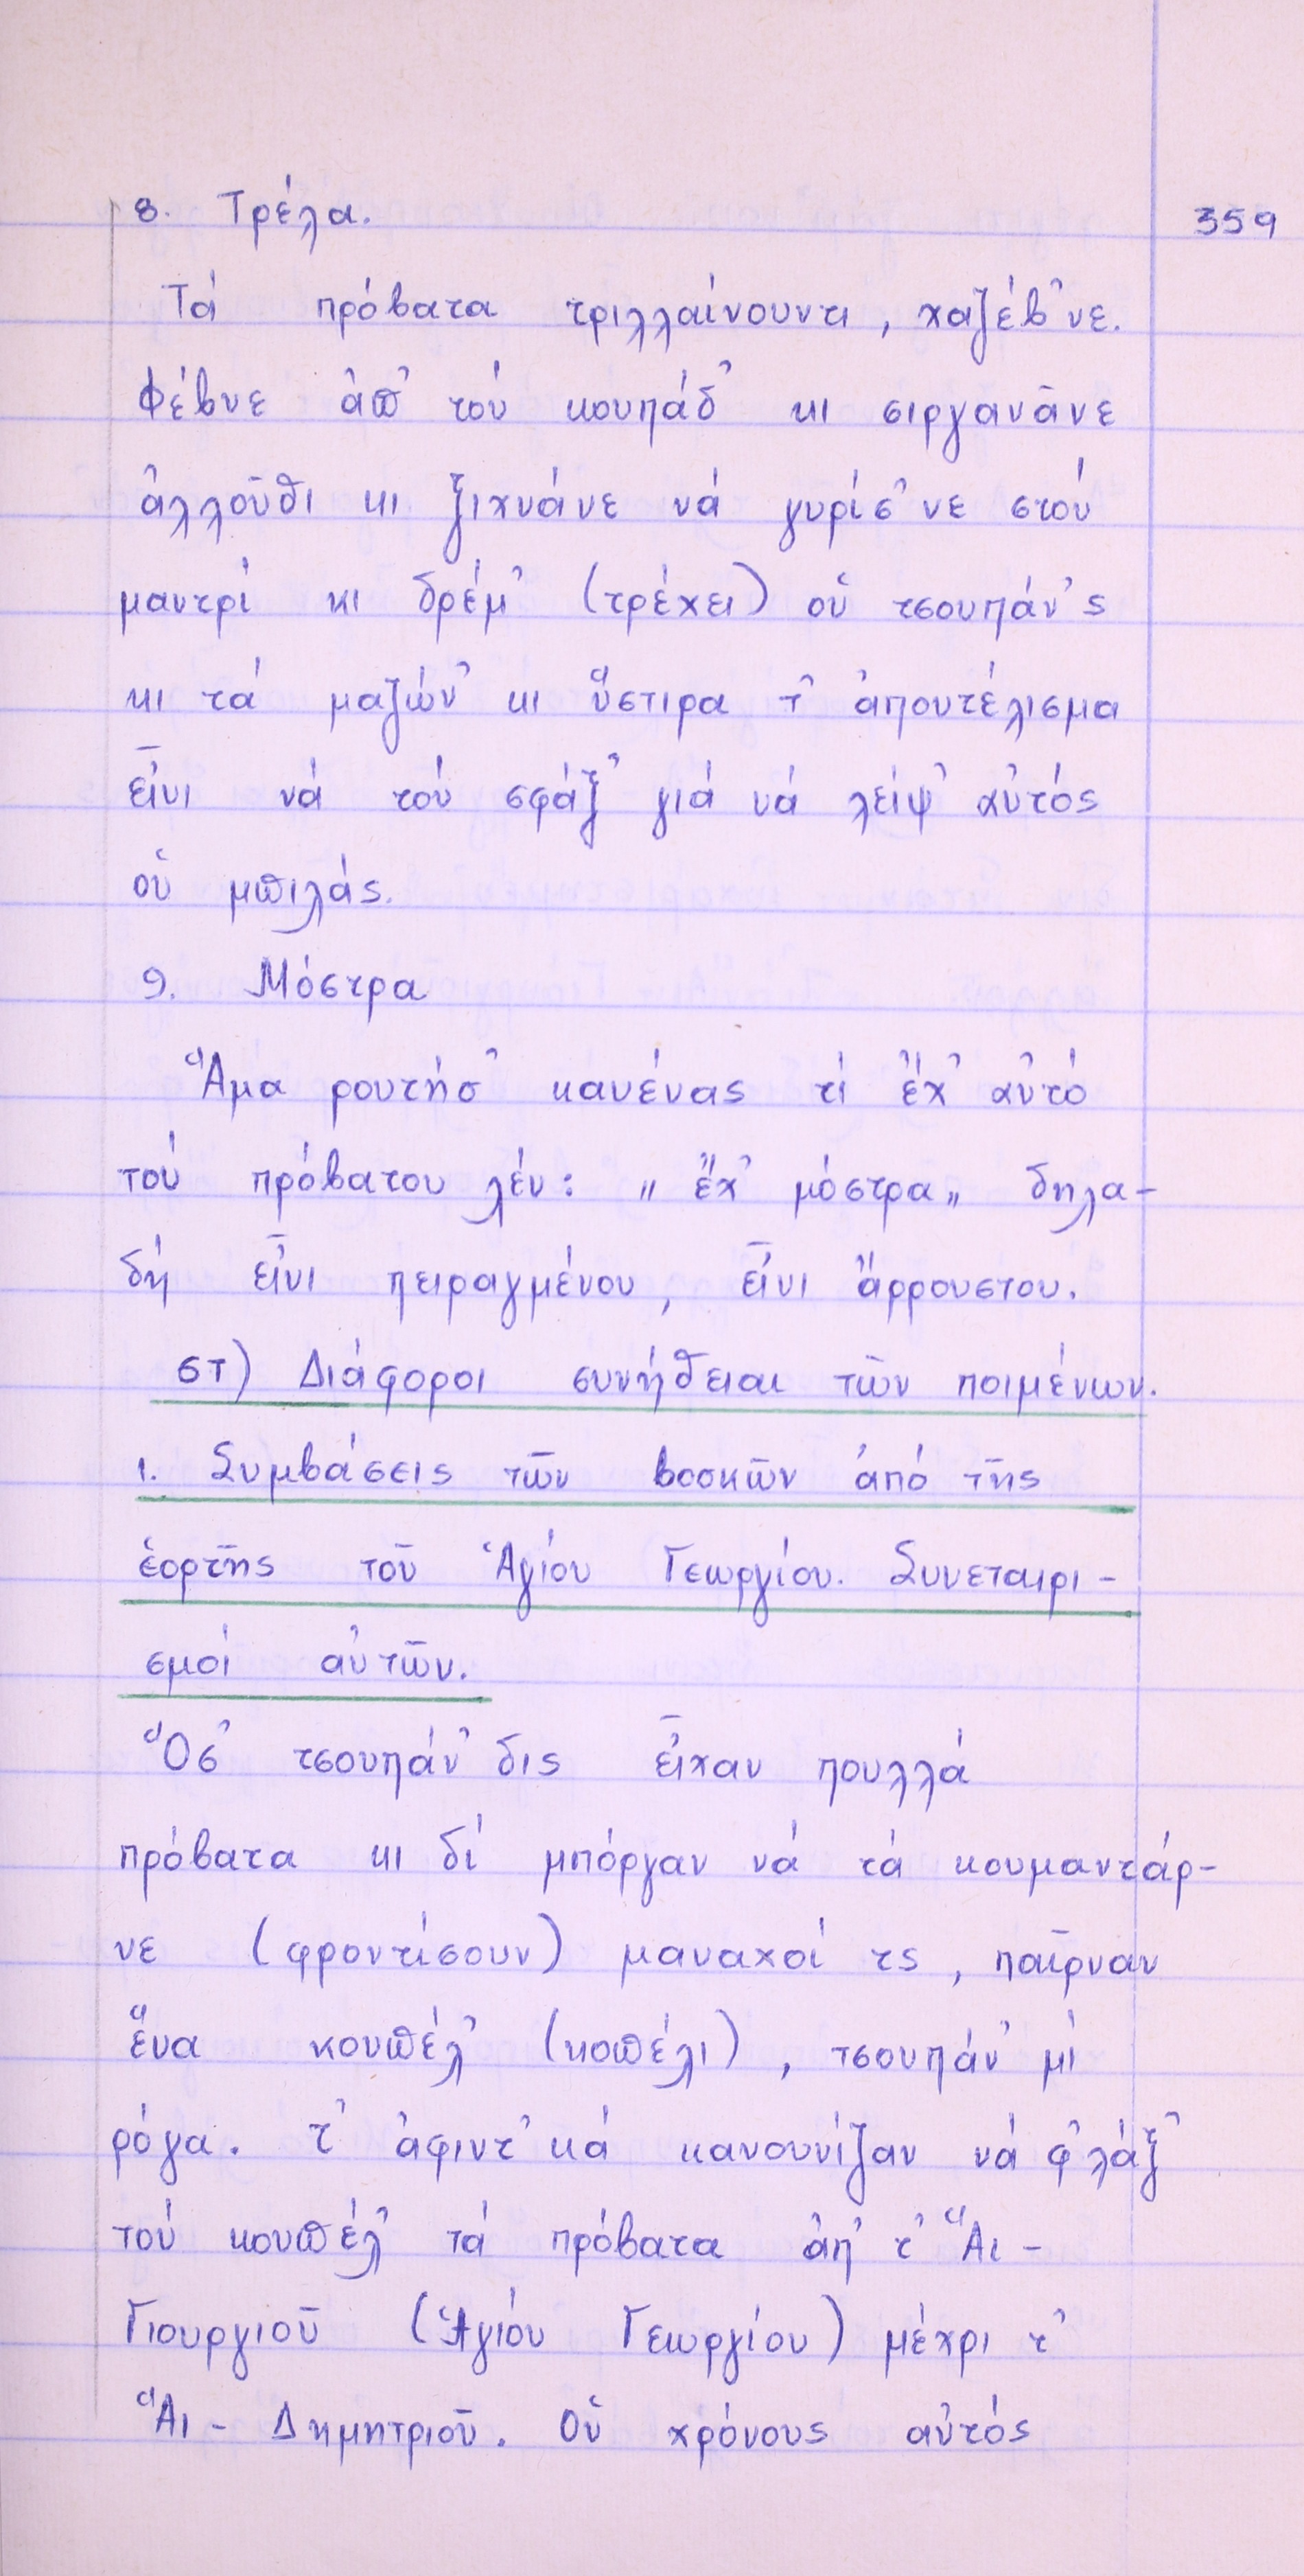 359
8. Τρέλα.
Τά πρόβατα τριλλαίνουντι, χαζέβ᾿νε.
Φέβνε ἀπ᾿ τού κουπάδ᾿ κι σιργανᾶνε
ἀλλοῦθι κι ξιχνάνε νά γυρίσ᾿νε στού
μαντρί κι δρέμ᾿ (τρέχει) οὑ τσουπάν᾿ς
κι τά μαζών᾿ κι ὕστιρα τ᾿ ἀπουτέλισμα
εἶνι νά τού σφάξ᾿ γιά νά λείψ᾿ αὐτός
οὑ μπιλάς.
9. Μόστρα
Ἅμα ρουτήσ᾿ κανένας τί ἔχ᾿ αὐτό
τού πρόβατου λέν: „ ἔχ᾿ μόστρα„ δηλα-
δή εἶνι πειραγμένου, εἶνι ἄρρουστου.
στ) Διάφοροι συνήθειαι τῶν ποιμένων.
1. Συμβάσεις τῶν βοσκῶν ἀπό τῆς
ἑορτῆς τοῦ Ἁγίου Γεωργίου. Συνεταιρι-
σμοί αὐτῶν.
Ὅσ᾿ τσουπάν᾿δις εἶχαν πουλλά
πρόβατα κι δί μπόργαν νά τά κουμαντάρ-
νε (φροντίσουν) μαναχοί τς, παῖρναν
ἕνα κουπέλ᾿ (κοπέλι), τσουπάν᾿ μί
ρόγα. Τ᾿ ἀφιντ᾿κά κανουνίζαν νά φ᾿λάξ᾿
τού κουπέλ᾿ τά πρόβατα ἀπ᾿ τ᾿ Ἅι-
Γιουργιοῦ (Ἁγίου Γεωργίου) μέχρι τ᾿
Ἅι - Δημητριοῦ. Οὑ χρόνους αὐτός